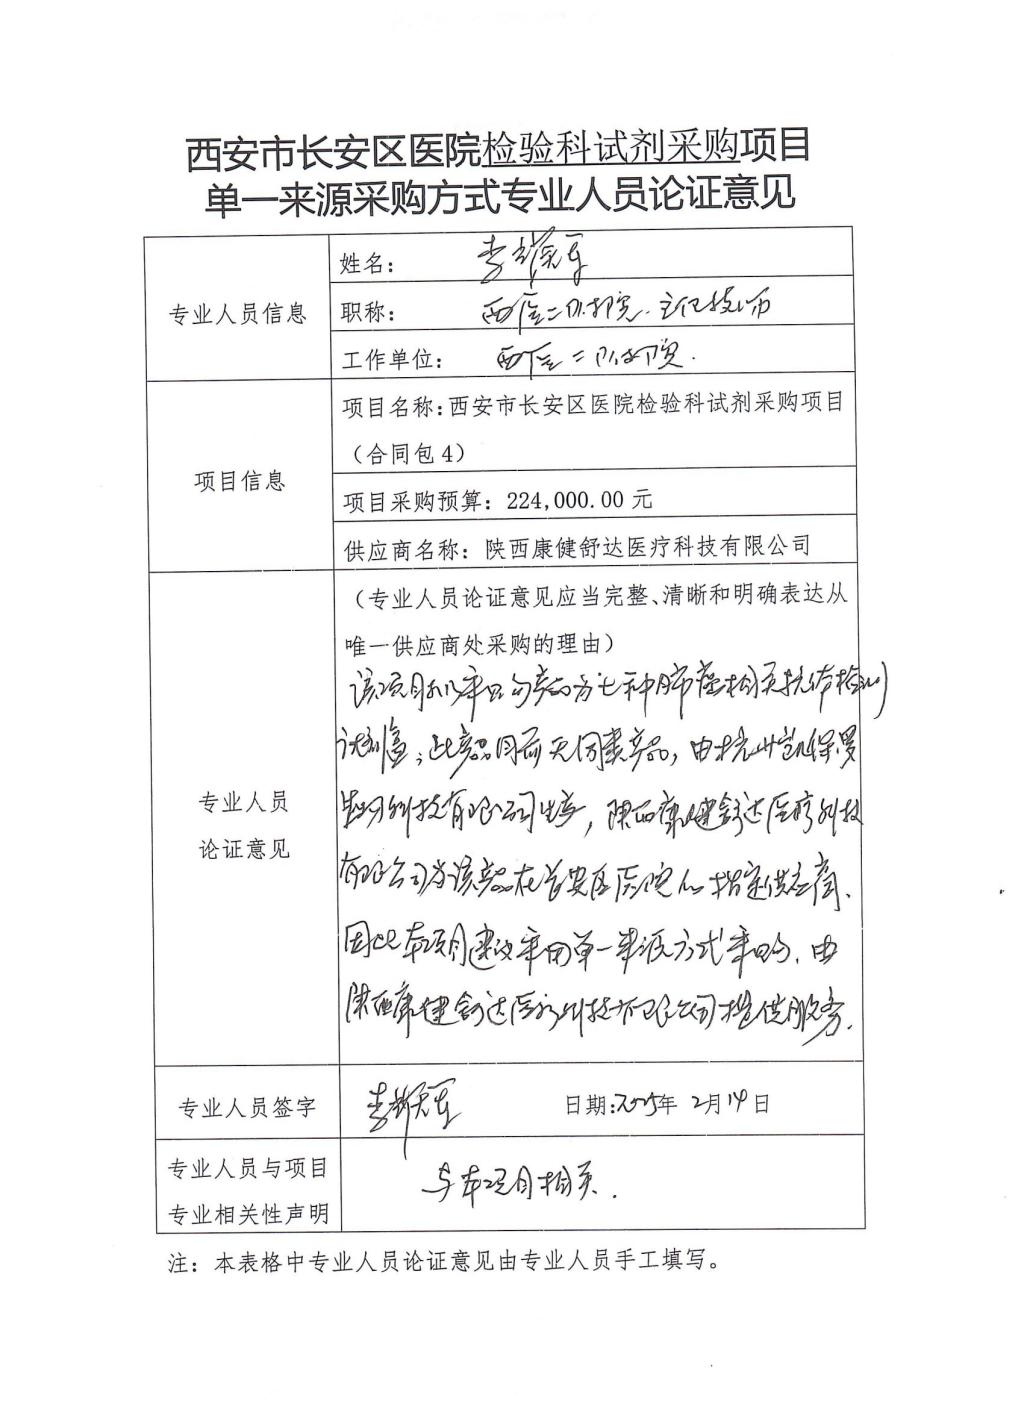 西安市长安区医院检验科试剂采购项目
单一来源采购方式专业人员论证意见
专业人员信息
姓名：李
职称： 西医二附院.主任技师
工作单位： 西医二附院.
项目信息
项目名称:西安市长安区医院检验科试剂采购项目
（合同包 4）
项目采购预算：224,000.00 元
供应商名称：陕西康健舒达医疗科技有限公司
专业人员
论证意见
（专业人员论证意见应当完整、清晰和明确表达从
唯一供应商处采购的理由）
该项目拟采购产品为七种肺癌相关抗体检测
试剂盒；此产品目前无同类产品，由杭州凯保罗
生物科技有限公司生产，陕西康健舒达医疗科技
有限公司为该产品在长安区医院的指定供应商、
因此本项目建议采用单一来源方式采购，由
陕西康健舒达医疗科技有限公司提供服务.
专业人员签字
李
日期:2025年 2月14日
专业人员与项目
专业相关性声明
与本项目相关.
注：本表格中专业人员论证意见由专业人员手工填写。